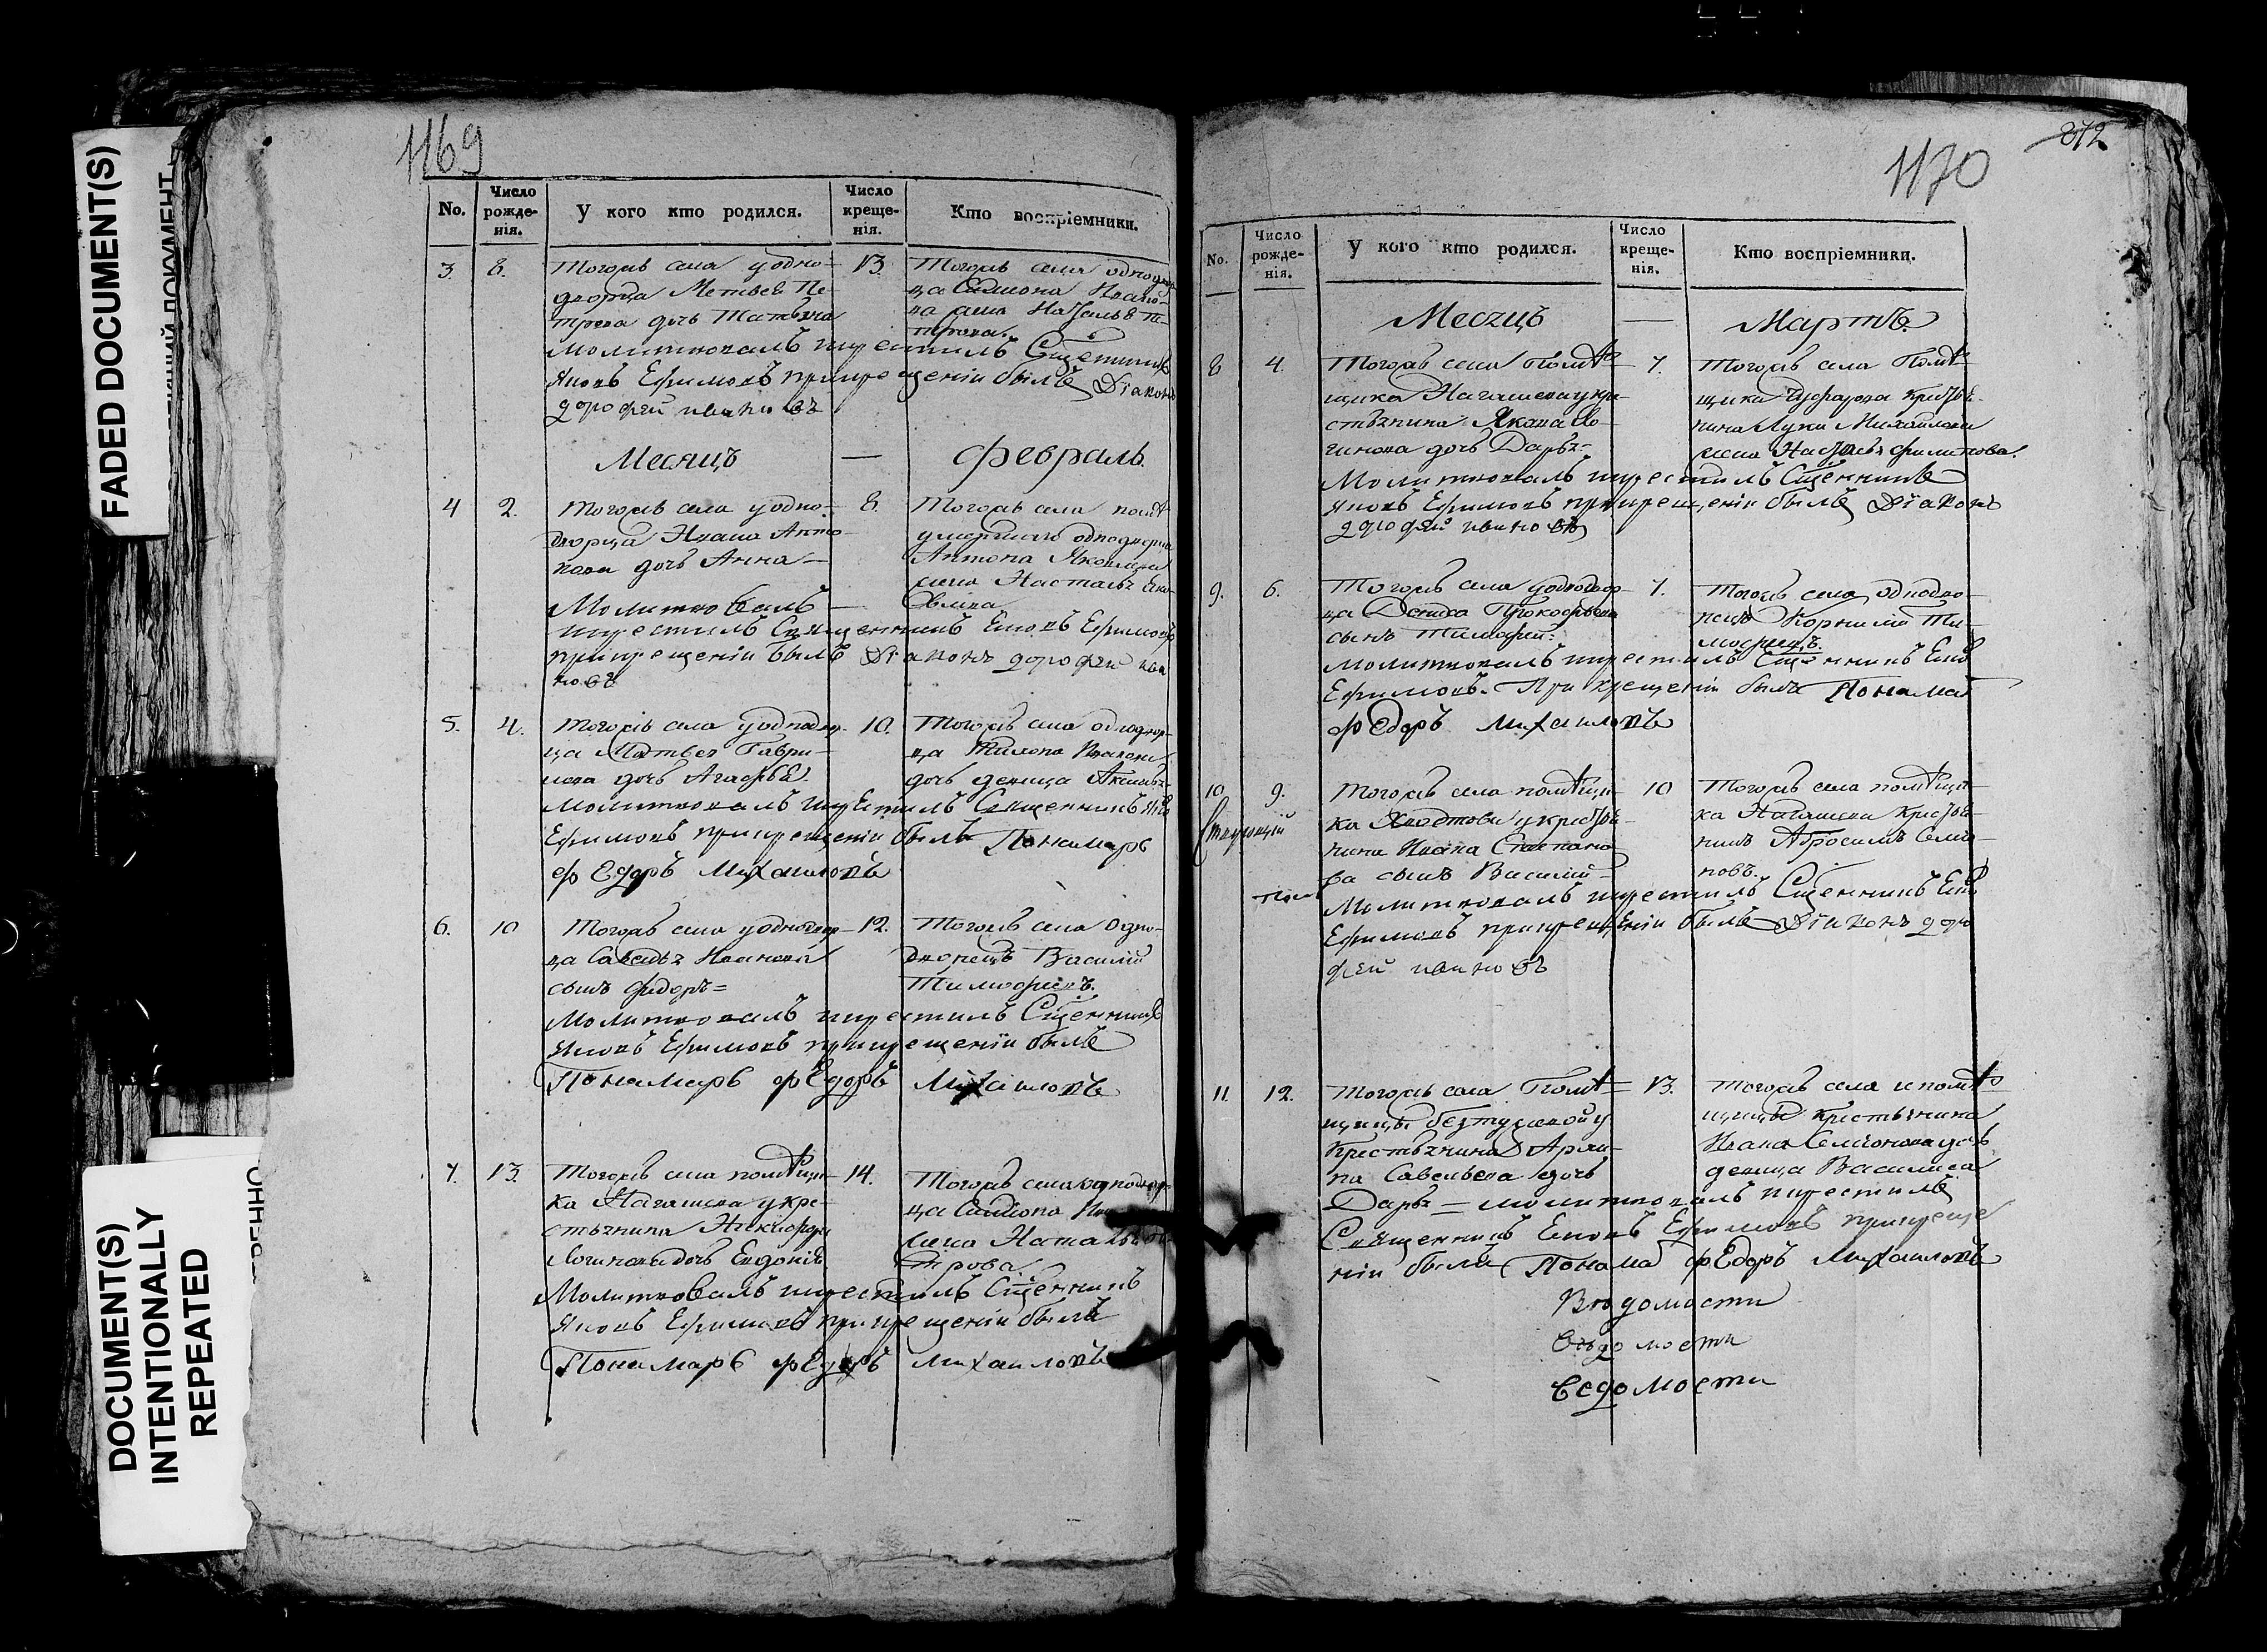 FADED DOCUMENT(S)
DOCUMENT(S)
INTENTIONALLY
REPEATED
1169
No.
Число рожде-нія.
У кого кто родился.
Число креще-нія.
Кто воспріемники.
3 8. Тогожъ села у одно-
дворца Матвея Пе-
трова дочь Татьяна
13. Тогожъ села однодвор
ца Симиона Ивано-
ва жена Наталья Пе-
трова.
Молитвовалъ и крестилъ Сщенникъ
Яковъ Ефимовъ при крещеніи былъ Діаконъ
дорофей ивановъ
Месяцъ — Февраль.
4 2. Тогожъ села у одно-
дворца Ивана Анто-
нова дочь Анна —
8. Тогожъ села
умершаго однодворца
Антона Яковлева
жена Настасья
Молитвовалъ —
и крестилъ Священникъ Яковъ Ефимовъ
при крещеніи былъ Діаконъ дорофей ива
новъ
5. 4. Тогожъ села у однодвор-
ца Матвея Гаври-
лова дочь Агафья.
10. Тогожъ села однодвор-
ца Ивана
дочь девица
Молитвовалъ и крестилъ Священникъ Яковъ
Ефимовъ при крещеніи былъ Понамарь
федоръ Михаиловъ
6. 10 Тогожъ села у однодвор-
ца Савелья Иванова
сынъ Федоръ =
12. Тогожъ села одно-
дворецъ Василій
Тимофеевъ.
Молитвовалъ и крестилъ Сщенникъ
Яковъ Ефимовъ при крещеніи былъ
Понамарь федоръ Михаиловъ
7. 13. Тогожъ села помѣщи-
ка Нагашева у кре-
стьянина Никифора
Логинова дочь Евдокія.
14. Тогожъ села однодвор-
ца Симиона
жена Наталья Пе-
трова
Молитвовалъ и крестилъ Сщенникъ
Яковъ Ефимовъ при крещеніи былъ
Понамарь федоръ Михаиловъ
1170
872
No.
Число рожде-нія.
У кого кто родился.
Число креще-нія.
Кто воспріемники.
Месяцъ — Мартъ.
8 4. Тогожъ села Помѣ-
щика Нагашева у кре-
стьянина Якова Ло-
гинова дочь Дарья.
7. Тогожъ села Помѣ-
щика
Луки Михайлова
жена Настасья Филипова.
Молитвовалъ и крестилъ Сщенникъ
Яковъ Ефимовъ при крещеніи былъ Діаконъ
дорофей ивановъ
9. 6. Тогожъ села у однодвор-
ца Дениса Прокофьева
сынъ Тимофей.
7. Тогожъ села однодво-
рецъ Корнилій Ти-
мофеевъ.
Молитвовалъ и крестилъ Сщенникъ Яковъ
Ефимовъ. При крещеніи былъ Понамарь
федоръ Михаиловъ
10 9. Тогожъ села помѣщи-
ка у крестья-
нина Ивана Степано-
ва сынъ Василій —
10 Тогожъ села помѣщи-
ка Нагашева крестья-
нинъ Абросимъ Семио-
новъ.
Молитвовалъ и крестилъ Сщенникъ Яковъ
Ефимовъ при крещеніи былъ Діаконъ доро
фей ивановъ
11. 12. Тогожъ села Помѣ-
щицы у
крестьянина Архи-
па Савельева дочь
13. Тогожъ села помѣ-
щицы крестьянина
Ивана Семионова дочь
девица Василиса
Дарья = молитвовалъ и крестилъ
Священникъ Яковъ Ефимовъ при креще
ніи былъ Понамарь федоръ Михаиловъ
Вѣдомости
Вѣдомости
Ведомости